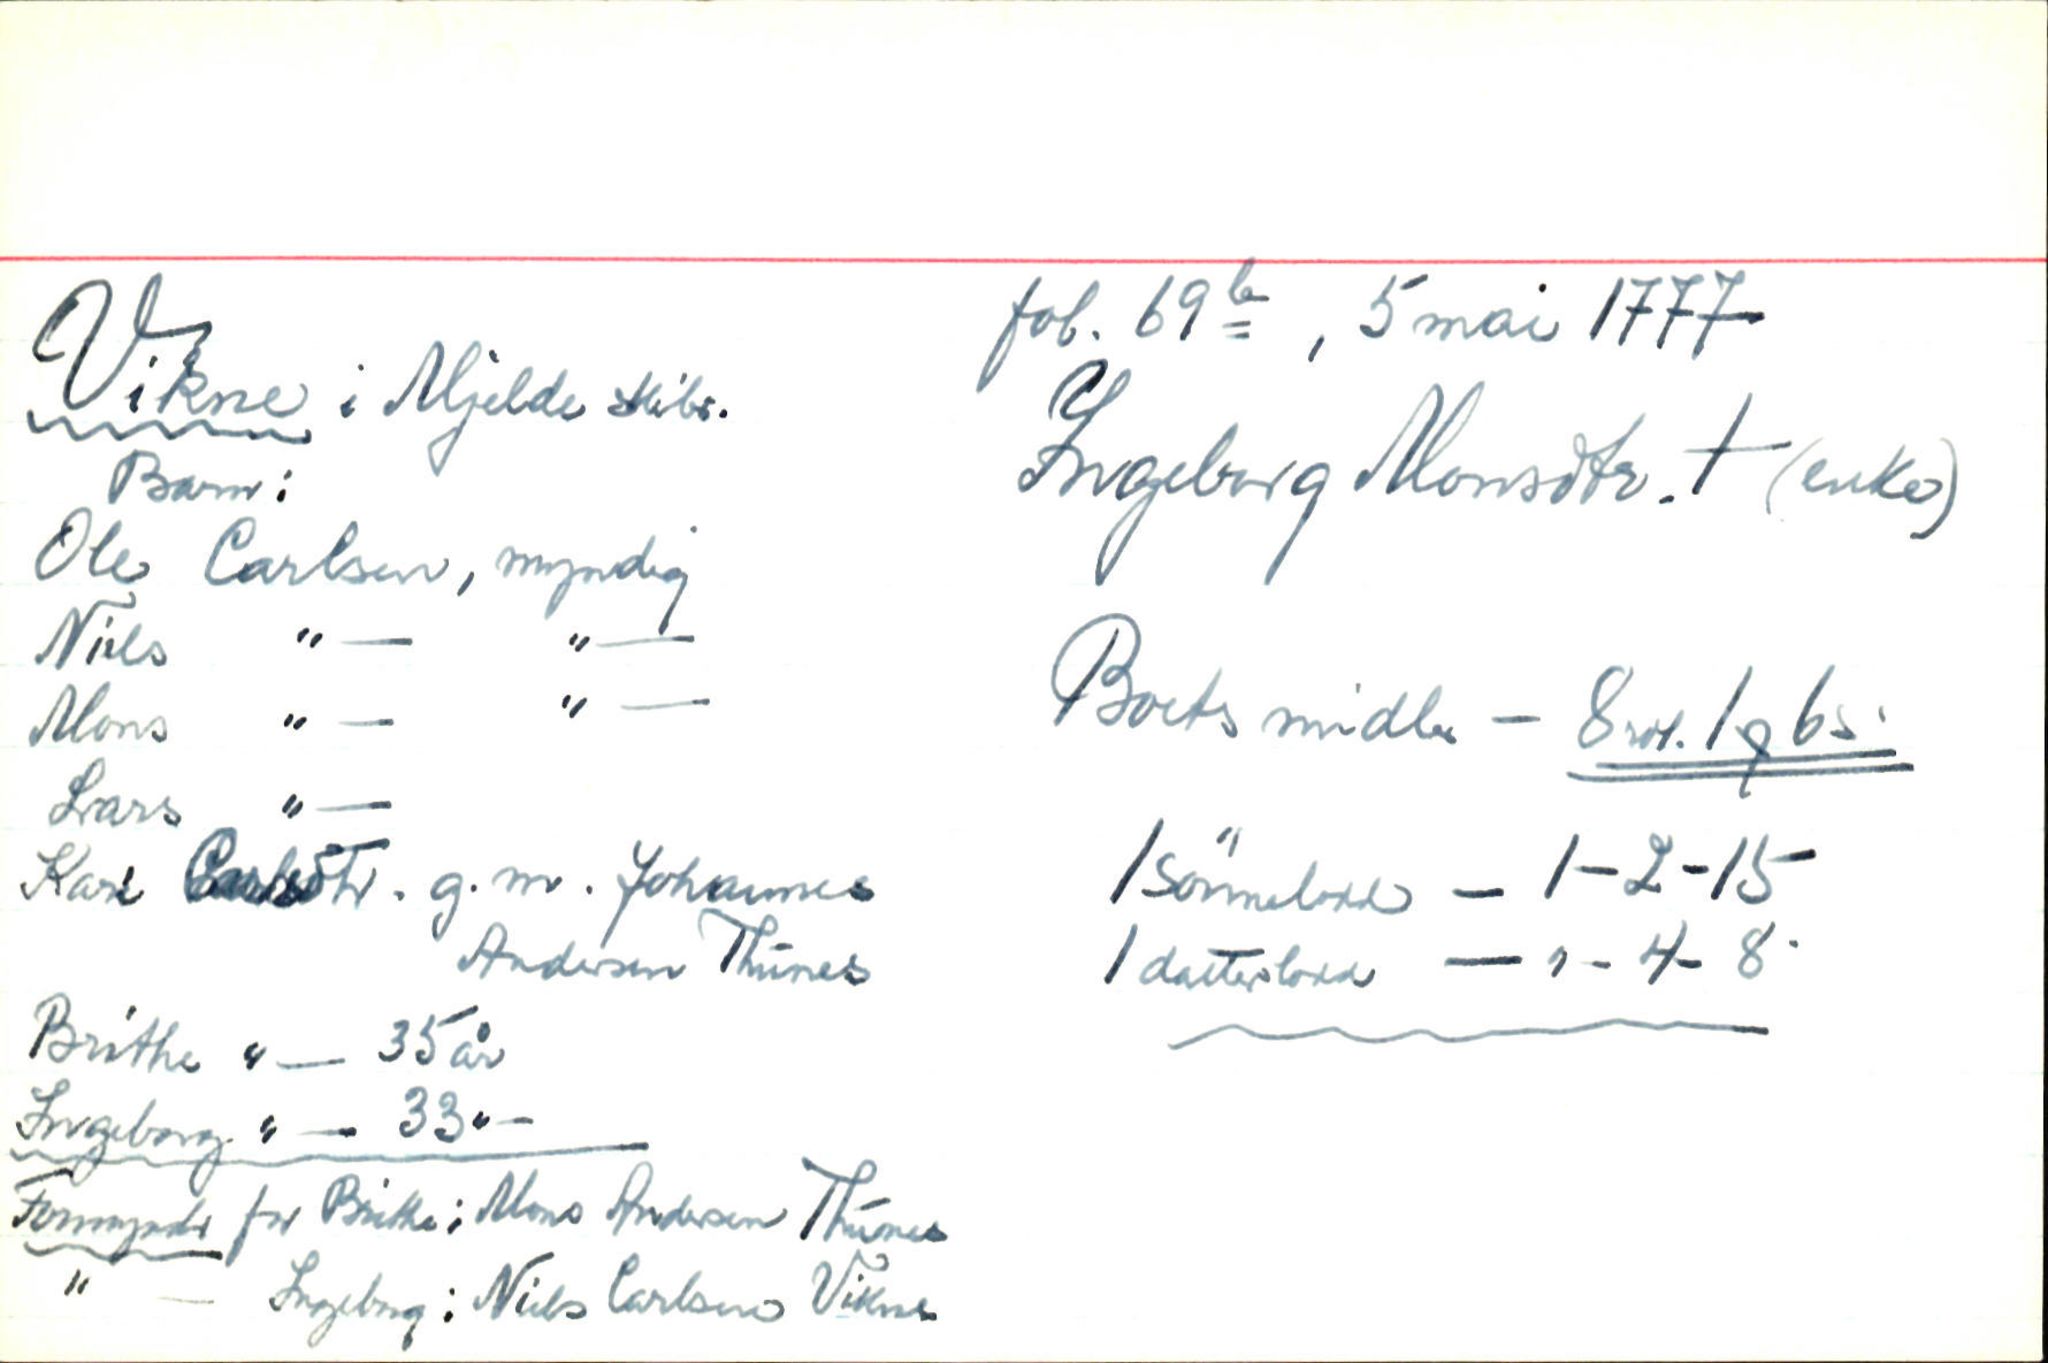 fol. 69b, 5 mai 1777
Vikne i Mjelde skibr.
Ingeborg Monsdtr. † (enke)
Barn:
Ole Carlsen, myndig
Niels "— "—
Mons "— "—
Lars "—
Kari Carlsdtr. g. m. Johannes
Andersen Thunes
Brithe "— 35 år
Ingeborg "— 33 "—
Formynder for Brithe: Mons Andersen Thunes
" — Ingeborg: Niels Carlsen Vikne
Boets midler — 8 rdl. 1 q 6 s.
1 sönnelodd — 1-2-15
1 datterlodd — "-4-8